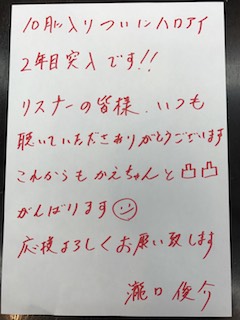 10月に入りついにハロアイ
2年目突入です!!
リスナーの皆様、いつも
聴いていただきありがとうございます
これからもかえちゃんと凸凸
がんばります
応援よろしくお願い致します
瀧口 俊介